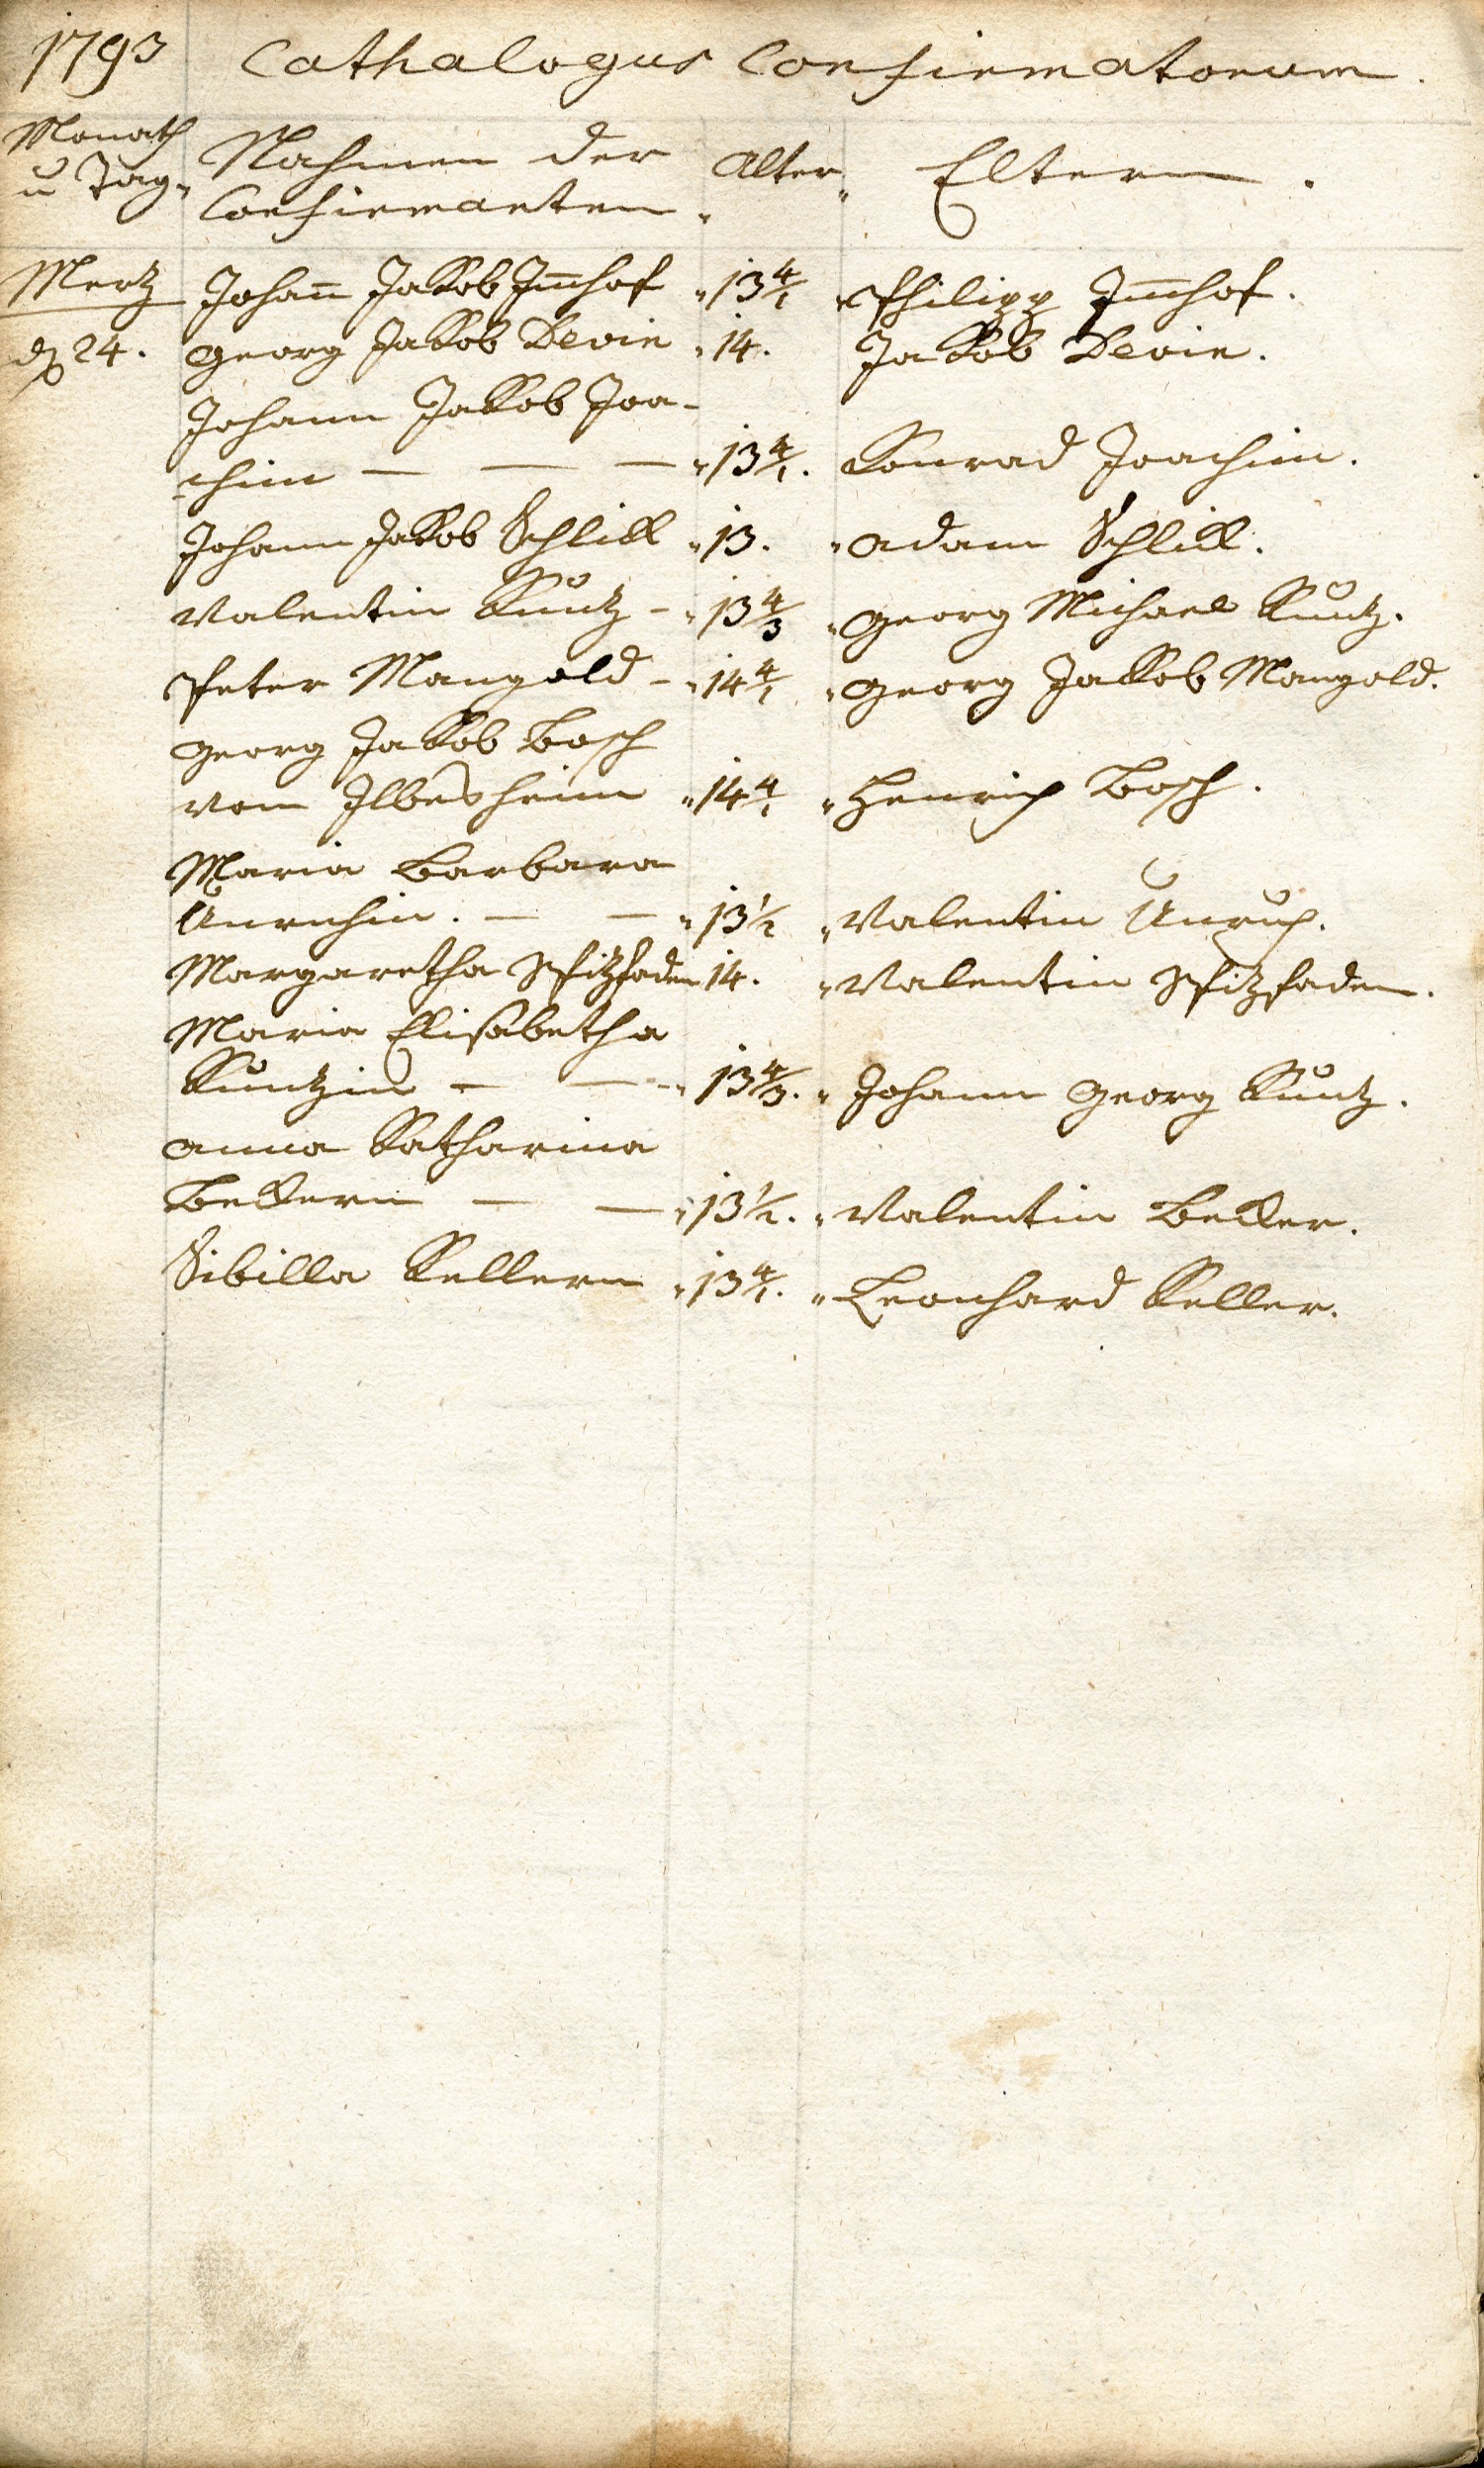 1793 Cathalogus Confirmatorum.
Monath u Tag. Nahmen der Confirmanten. Alter. Eltern.
Mertz Johañ Jakob Im̄hof 13 4/1 Philipp Im̄hof.
24. Georg Jakob Devin 14. Jakob Devin.
Johann Jakob Joa-
chim — — — 13 4/1. Konrad Joachim.
Johann Jakob Schlikk 13. Adam Schlikk.
Valentin Kuntz - 13 4/3 Georg Michael Kuntz.
Peter Mangold - 14 4/1 Georg Jakob Mangold.
Georg Jakob Bosch
von Ilbesheim 14 4/1 Henrich Bosch.
Maria Barbara
Unruhin. — — 13 1/2 Valentin Unruh.
Margaretha Spitzfaden 14. Valentin Spitzfaden.
Maria Elisabetha
Kuntzin — — 13 4/3. Johann Georg Kuntz.
Anna Katharina
Bekkern — — 13 1/2. Valentin Bekker.
Sibilla Kellern 13 4/1. Leonhard Keller.